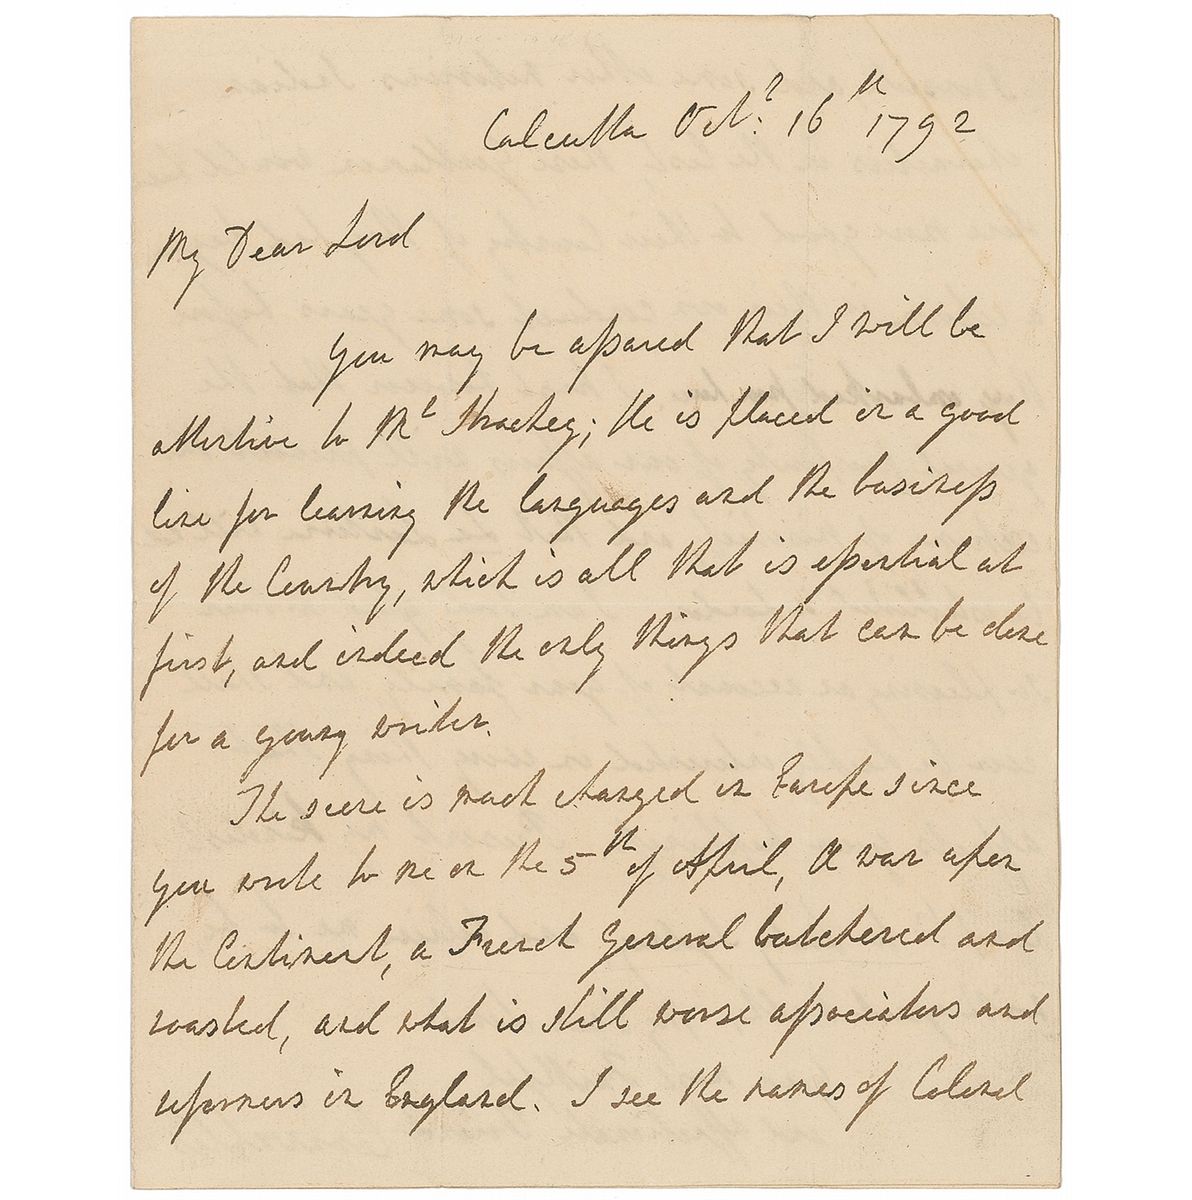 Calcutta Oct.r 16th 1792
My Dear Lord
you may be assured that I will be
attentive to Mr Strachey; He is placed in a good
line for learning the languages and the business
of the Country, which is all that is essential at
first, and indeed the only things that can be done
for a young writer.
The scene is much changed in Europe since
you wrote to me on the 5th of April, A war upon
the Continent, a French General butchered and
roasted, and what is still worse associators and
reformers in England. I see the names of Colonel